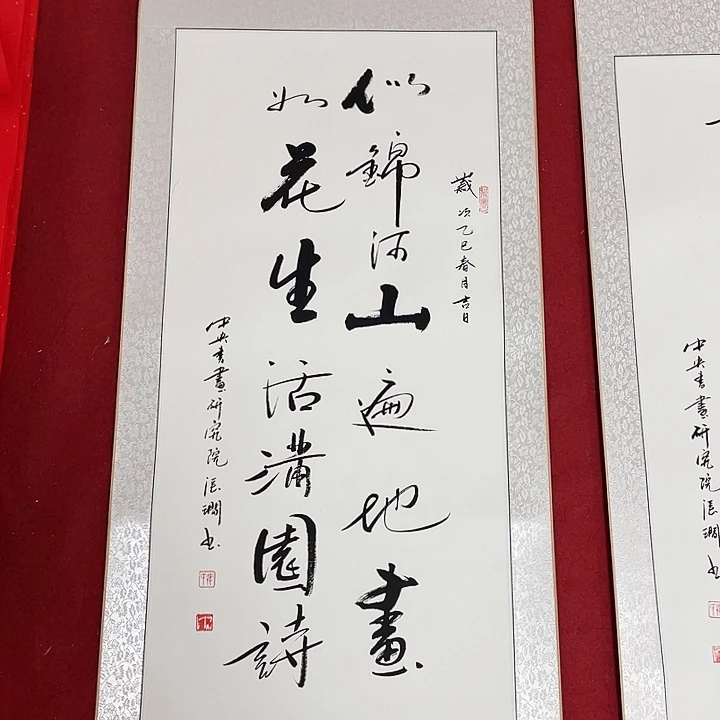 歲次乙巳春月吉日
似錦河山遍地畫
如花生活满園詩
中央書畫研究院
中央書畫研究院